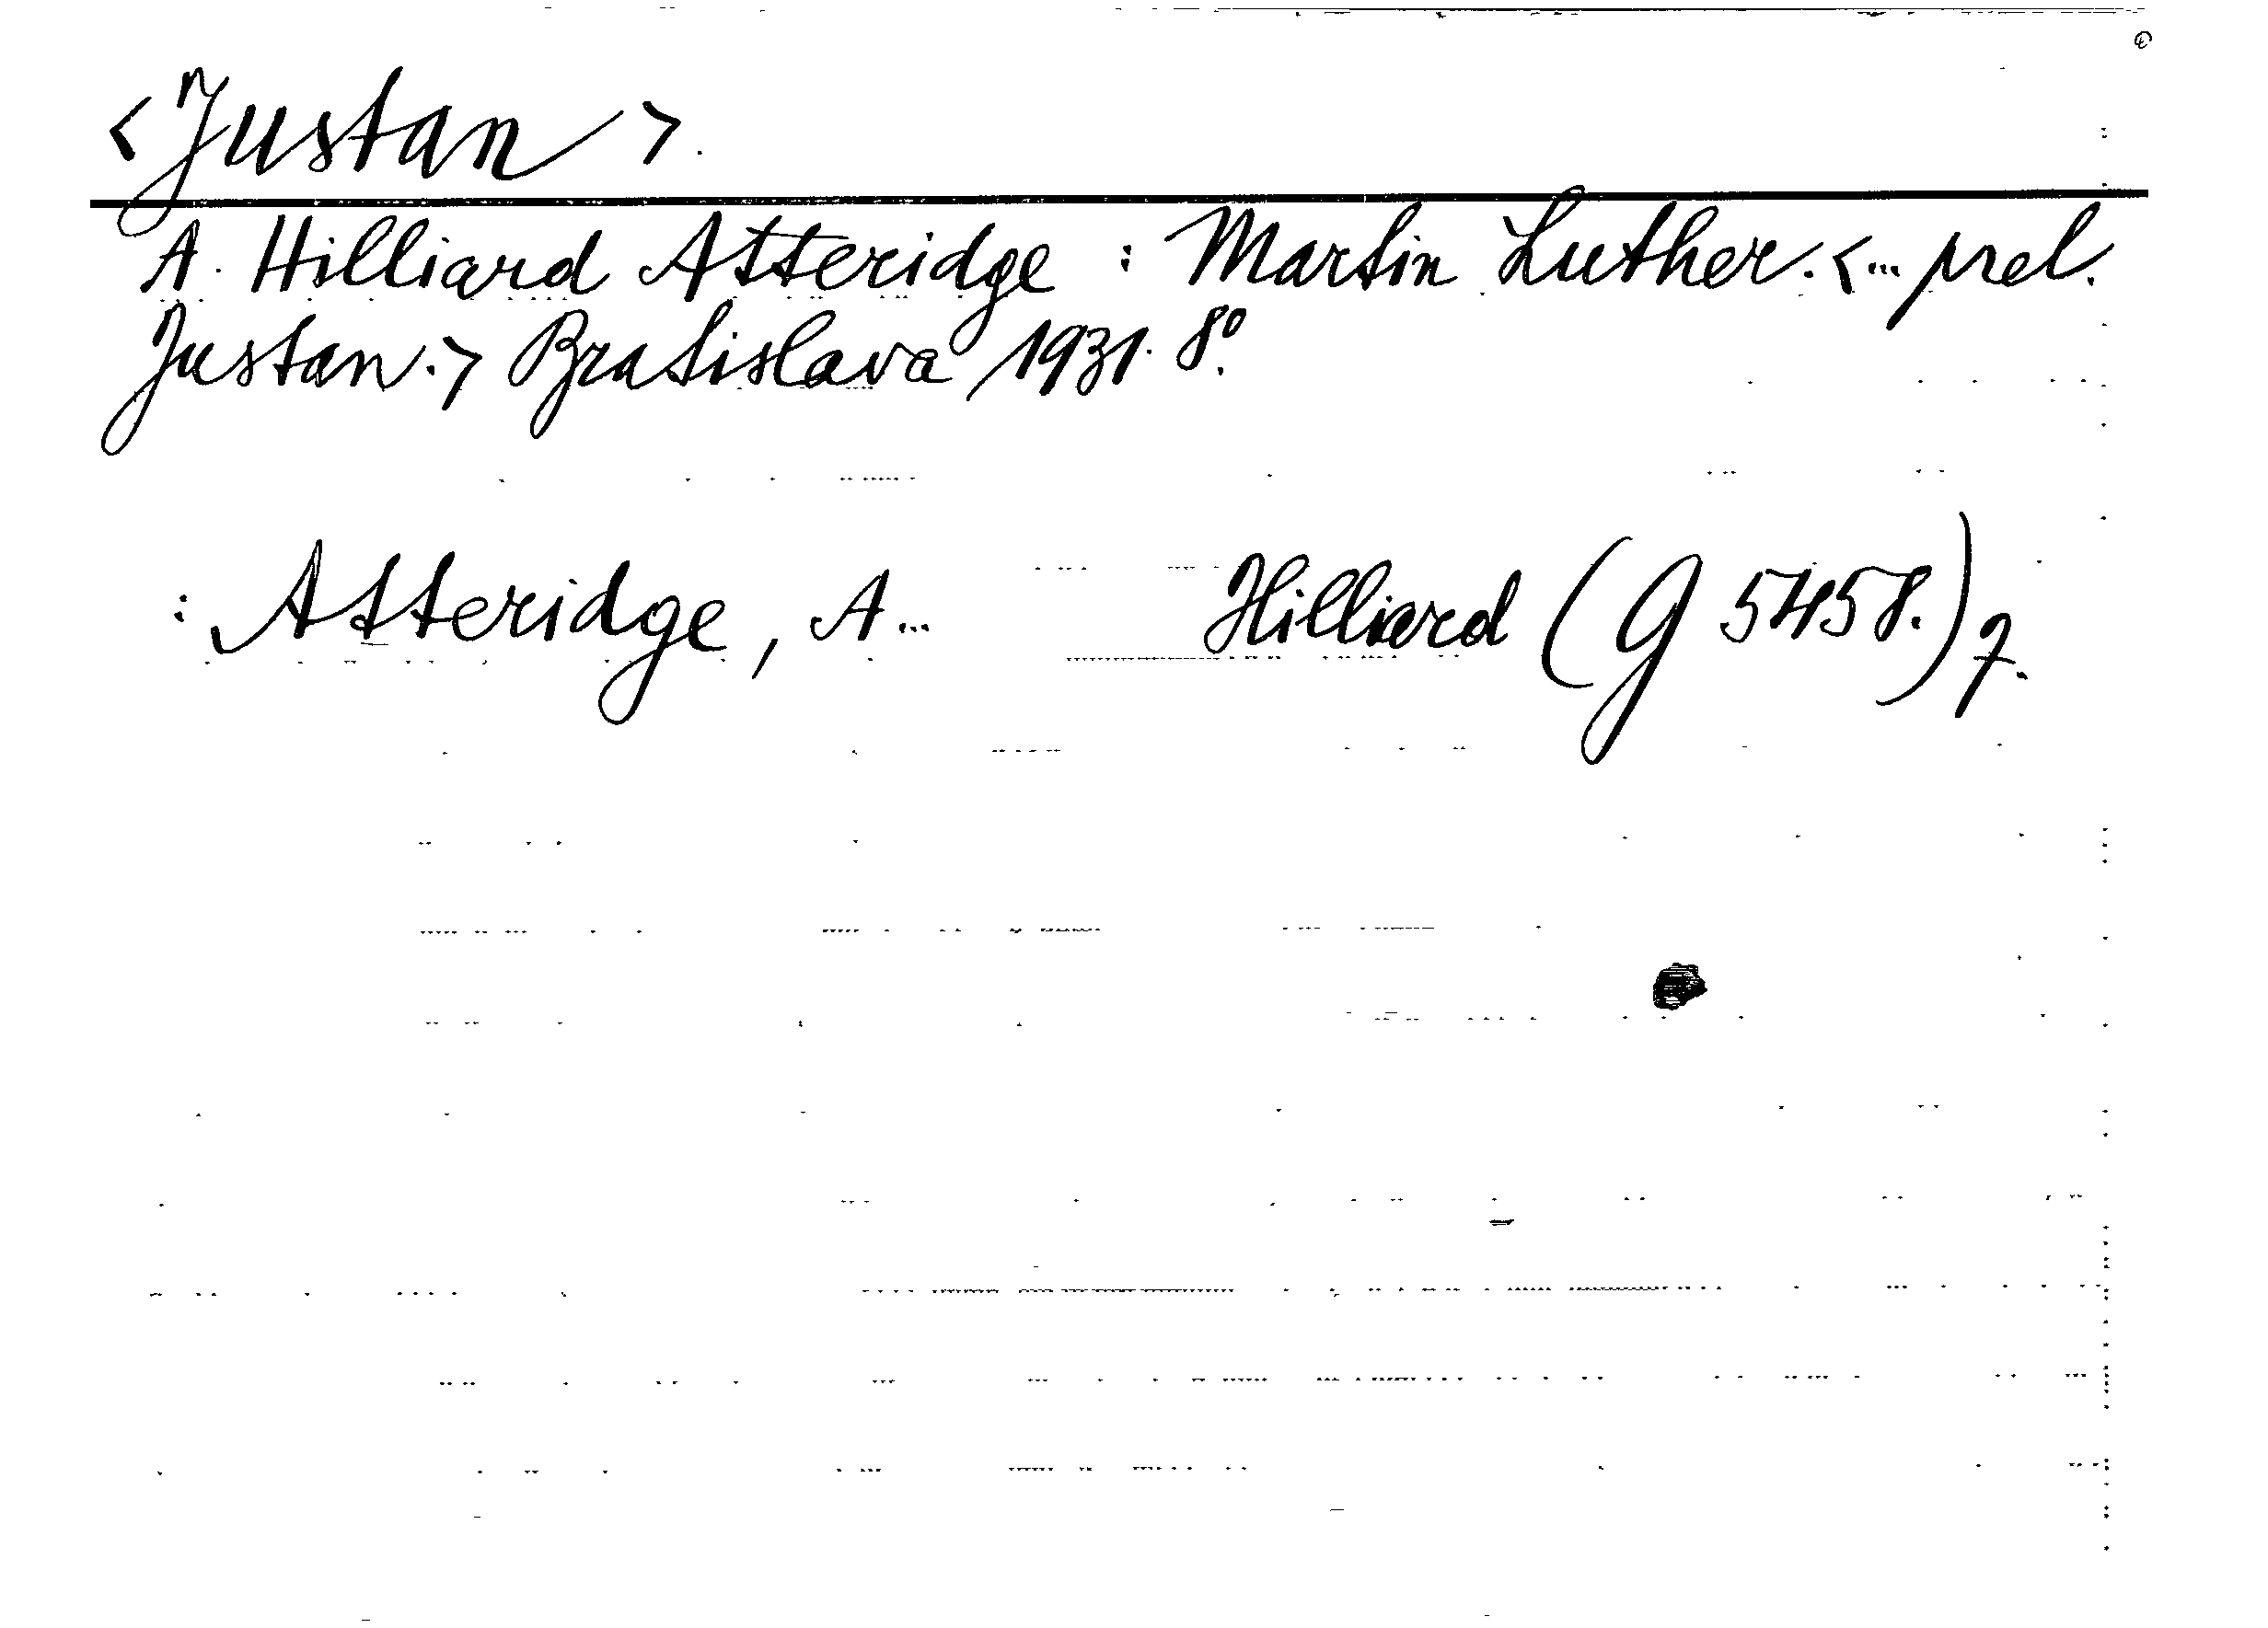 <Justan>.
A. Hilliard Atteridge : Martin Luther. <... prel.
Justan.> Bratislava 1931. 8°.
: Atteridge, A... Hilliard (G 5458.) 7.